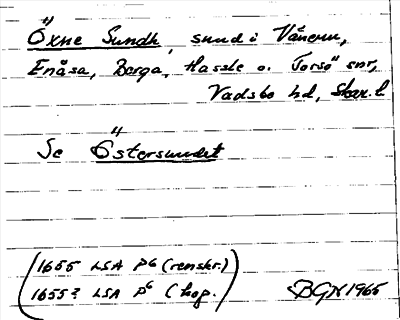 Öxne Sundh, sund i Vänern,
Enåsa, Berga, Hassle o. Torsö snr,
Vadsbo hd, Skar. l
Se Östersundet
(1655 LSA P6 (renskr.)
1655? LSA P6 (kop.) BGN 1965